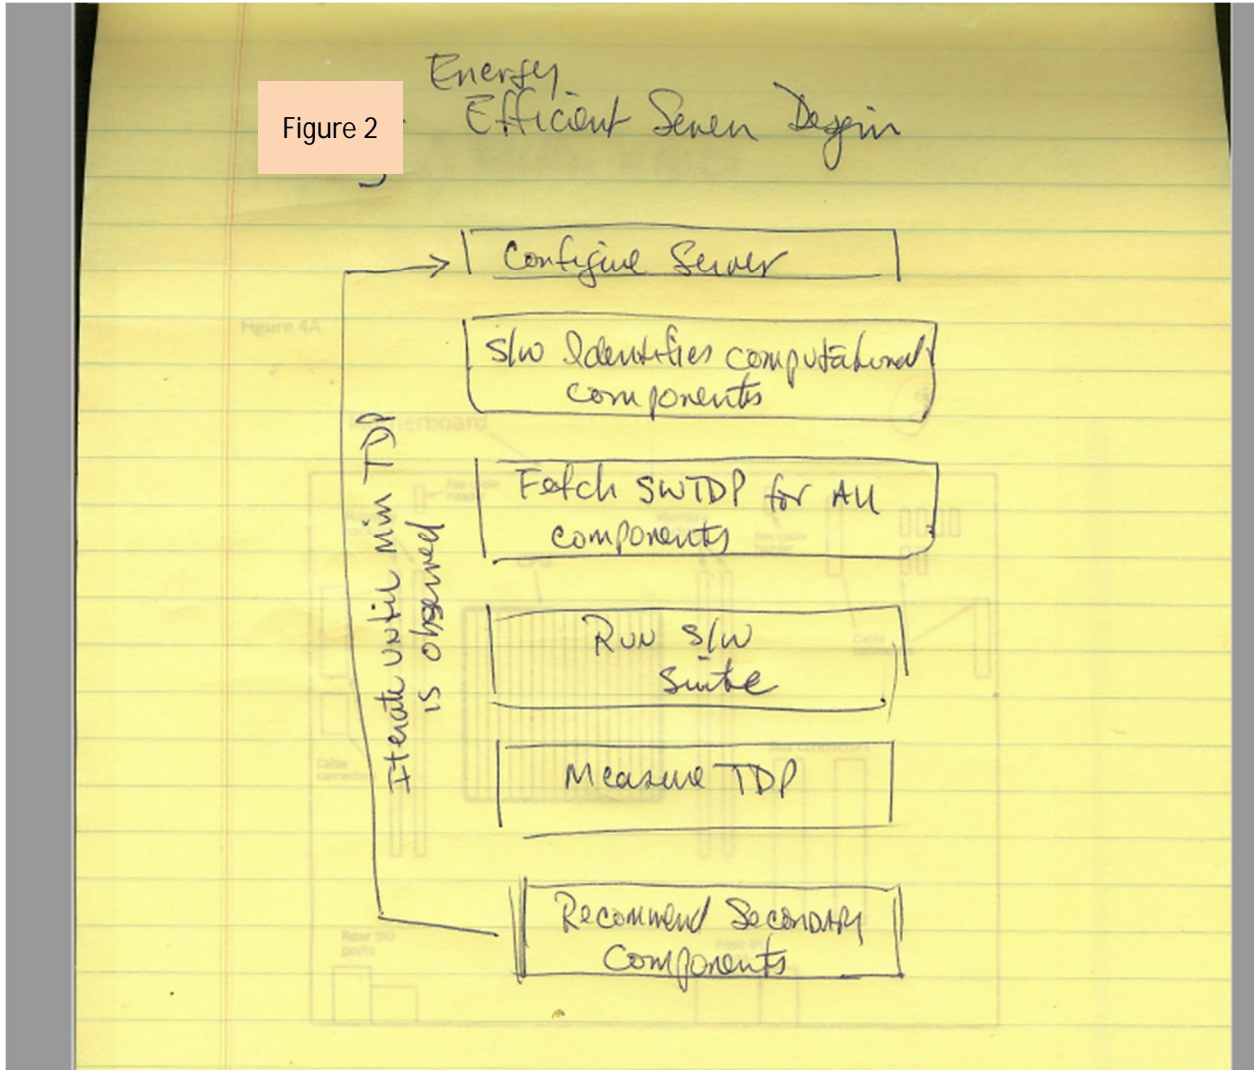 Figure 2
Energy
Efficient Server Design
Configure Server
S/W Identifies computational
components
Fetch SWTDP for All
components
Run S/W
Suite
Measure TDP
Recommend Secondary
Components
Iterate until Min TDP
is observed
Figure 4A
Motherboard
Rear I/O
ports
Cable